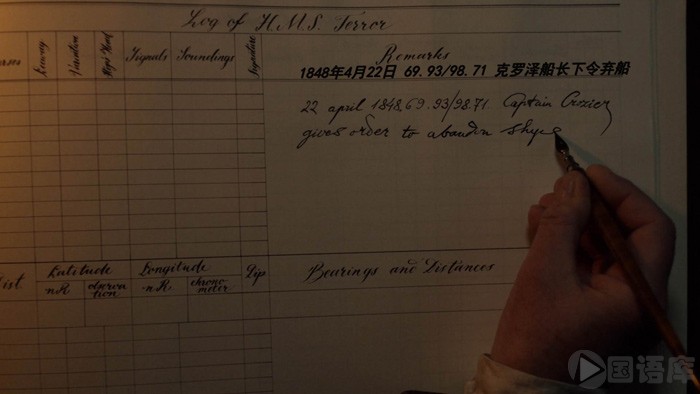 Log of H.M.S. Terror
Leeway Variation Signals Soundings Signature Remarks
1848年4月22日 69.93/98.71 克罗泽船长下令弃船
22 april 1848, 69.93/98.71. Captain Crozier
gives order to abandon
Latitude Longitude Dip Bearings and Distances
D.R. observa-tion D.R. chrono-meter
国语库